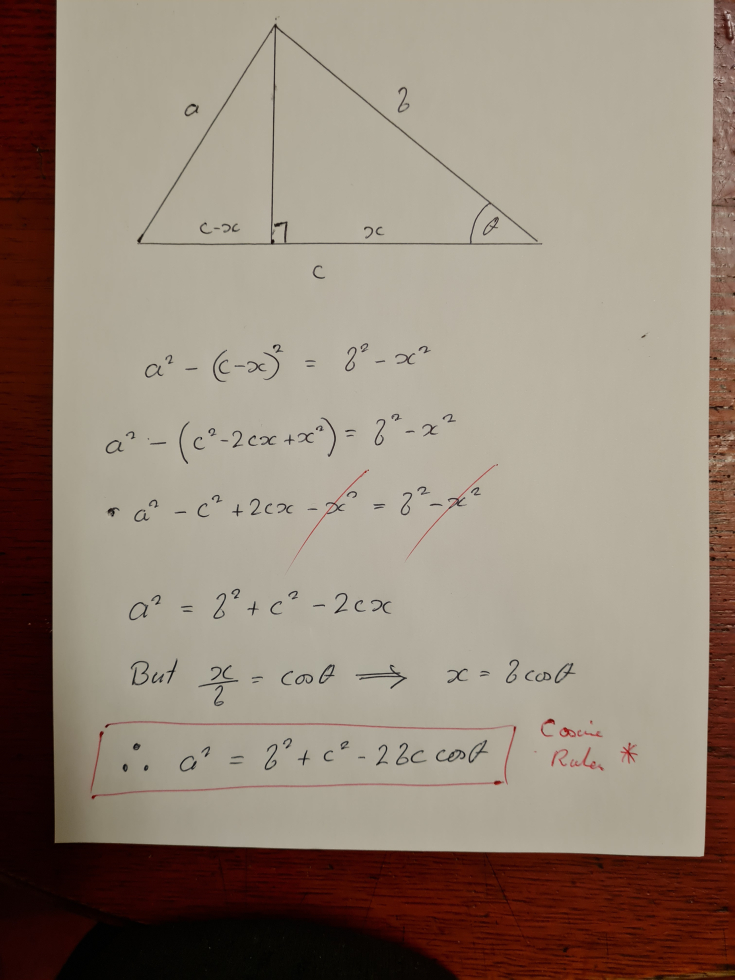 a
b
c-x
x
θ
c
a² - (c-x)² = b² - x²
a² - (c² - 2cx + x²) = b² - x²
a² - c² + 2cx - x² = b² - x²
a² = b² + c² - 2cx
But x/b = cosθ ⟹ x = b cosθ
∴ a² = b² + c² - 2bc cosθ
Cosine
Rules *